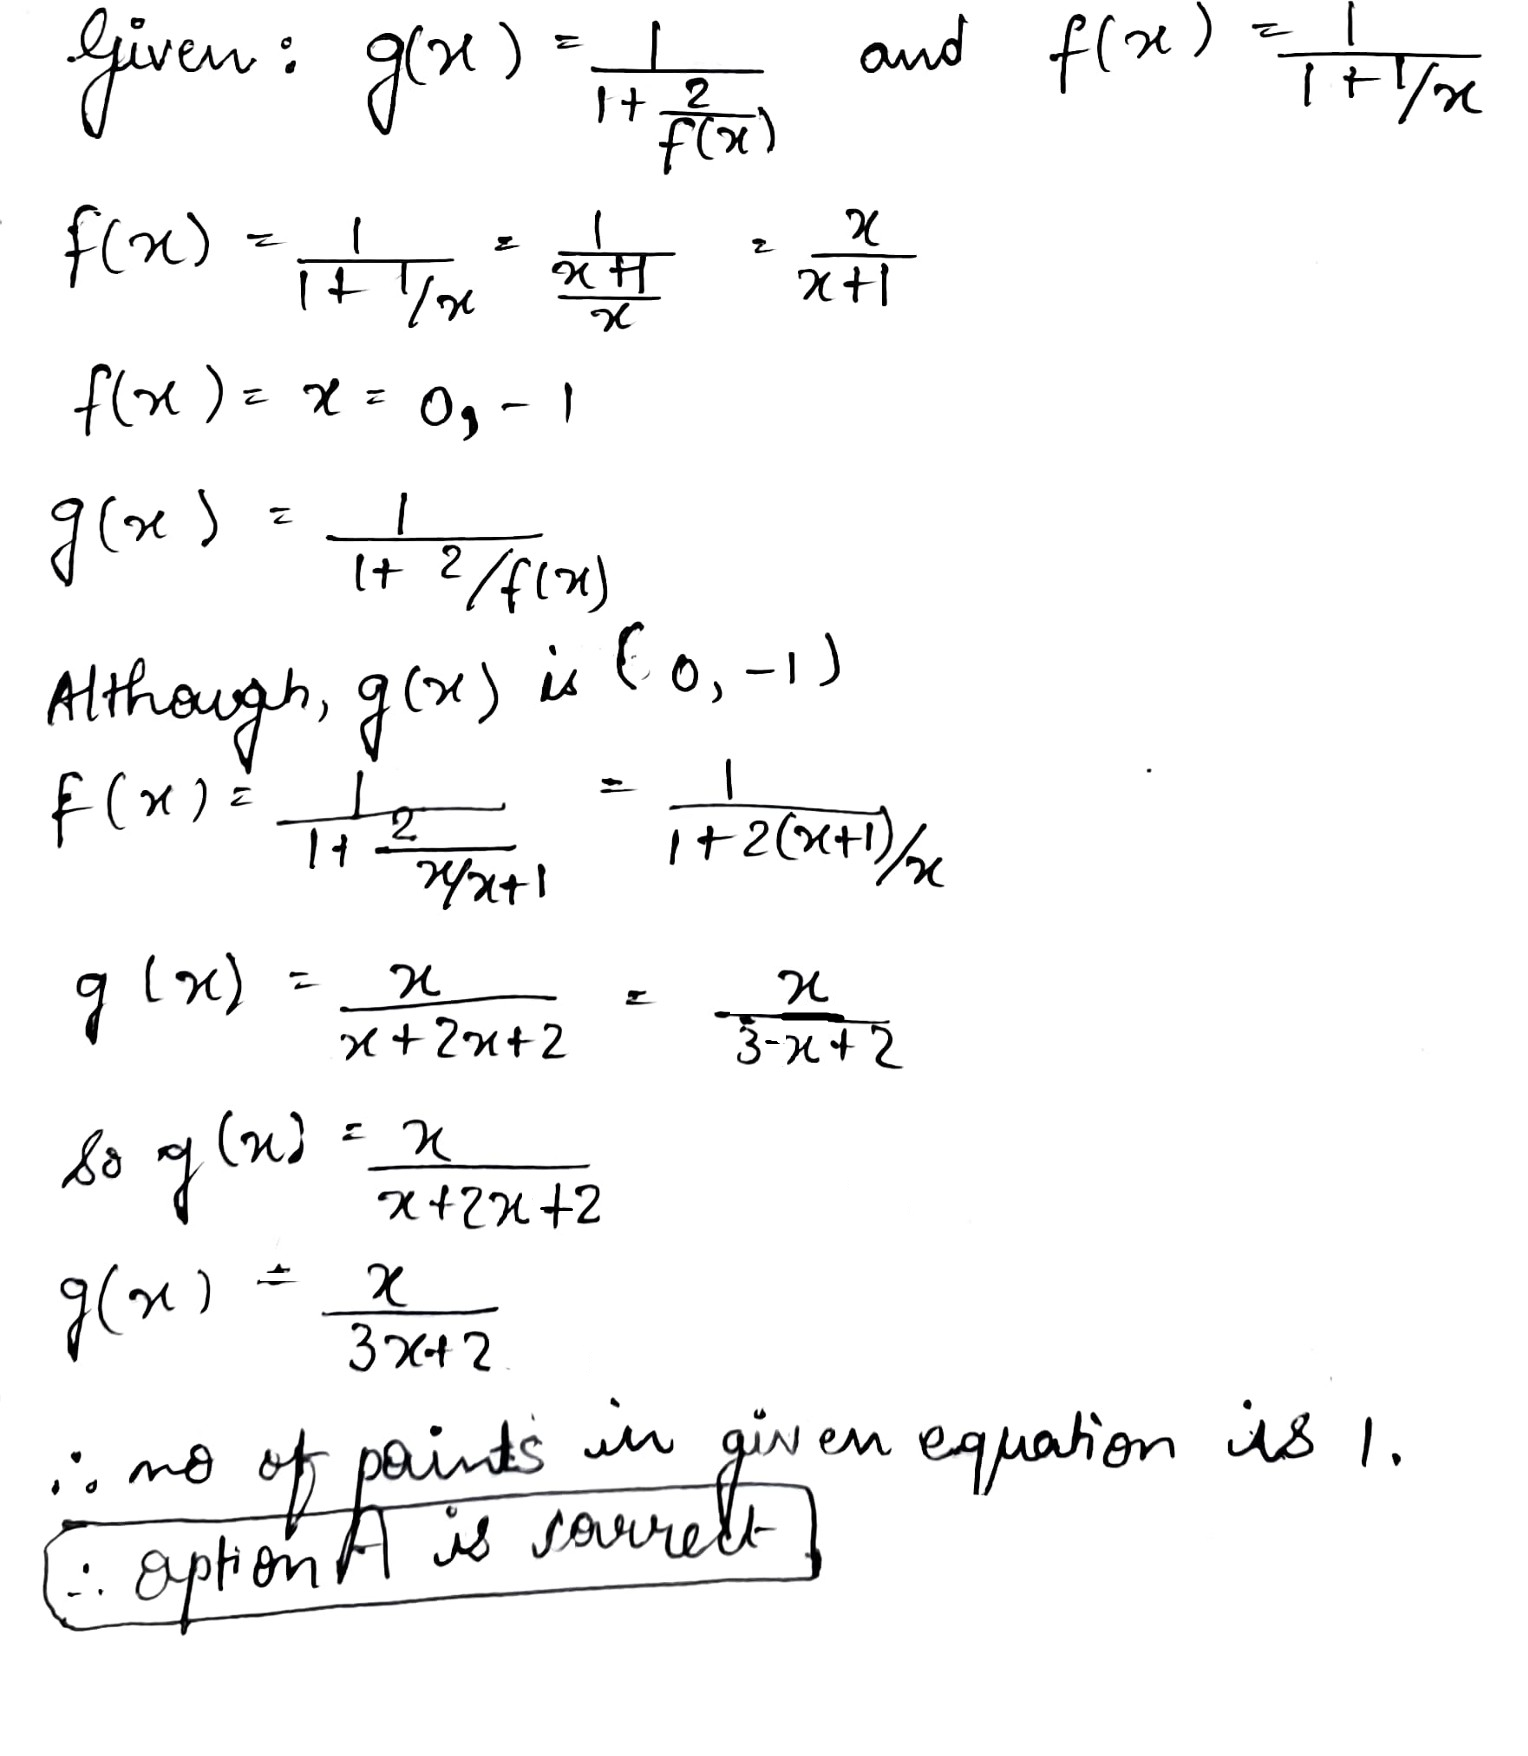 Given: g(x) = 1/(1+ 2/f(x)) and f(x) = 1/(1+1/x)
f(x) = 1/(1+1/x) = 1/((x+1)/x) = x/(x+1)
f(x) = x = 0, -1
g(x) = 1/(1+ 2/f(x))
Although, g(x) is (0, -1)
f(x) = 1/(1+ 2/(x/x+1)) = 1/(1+2(x+1)/x)
g(x) = x/(x+2x+2) = x/(3-x+2)
So g(x) = x/(x+2x+2)
g(x) = x/(3x+2)
∴ no of points in given equation is 1.
∴ option A is correct